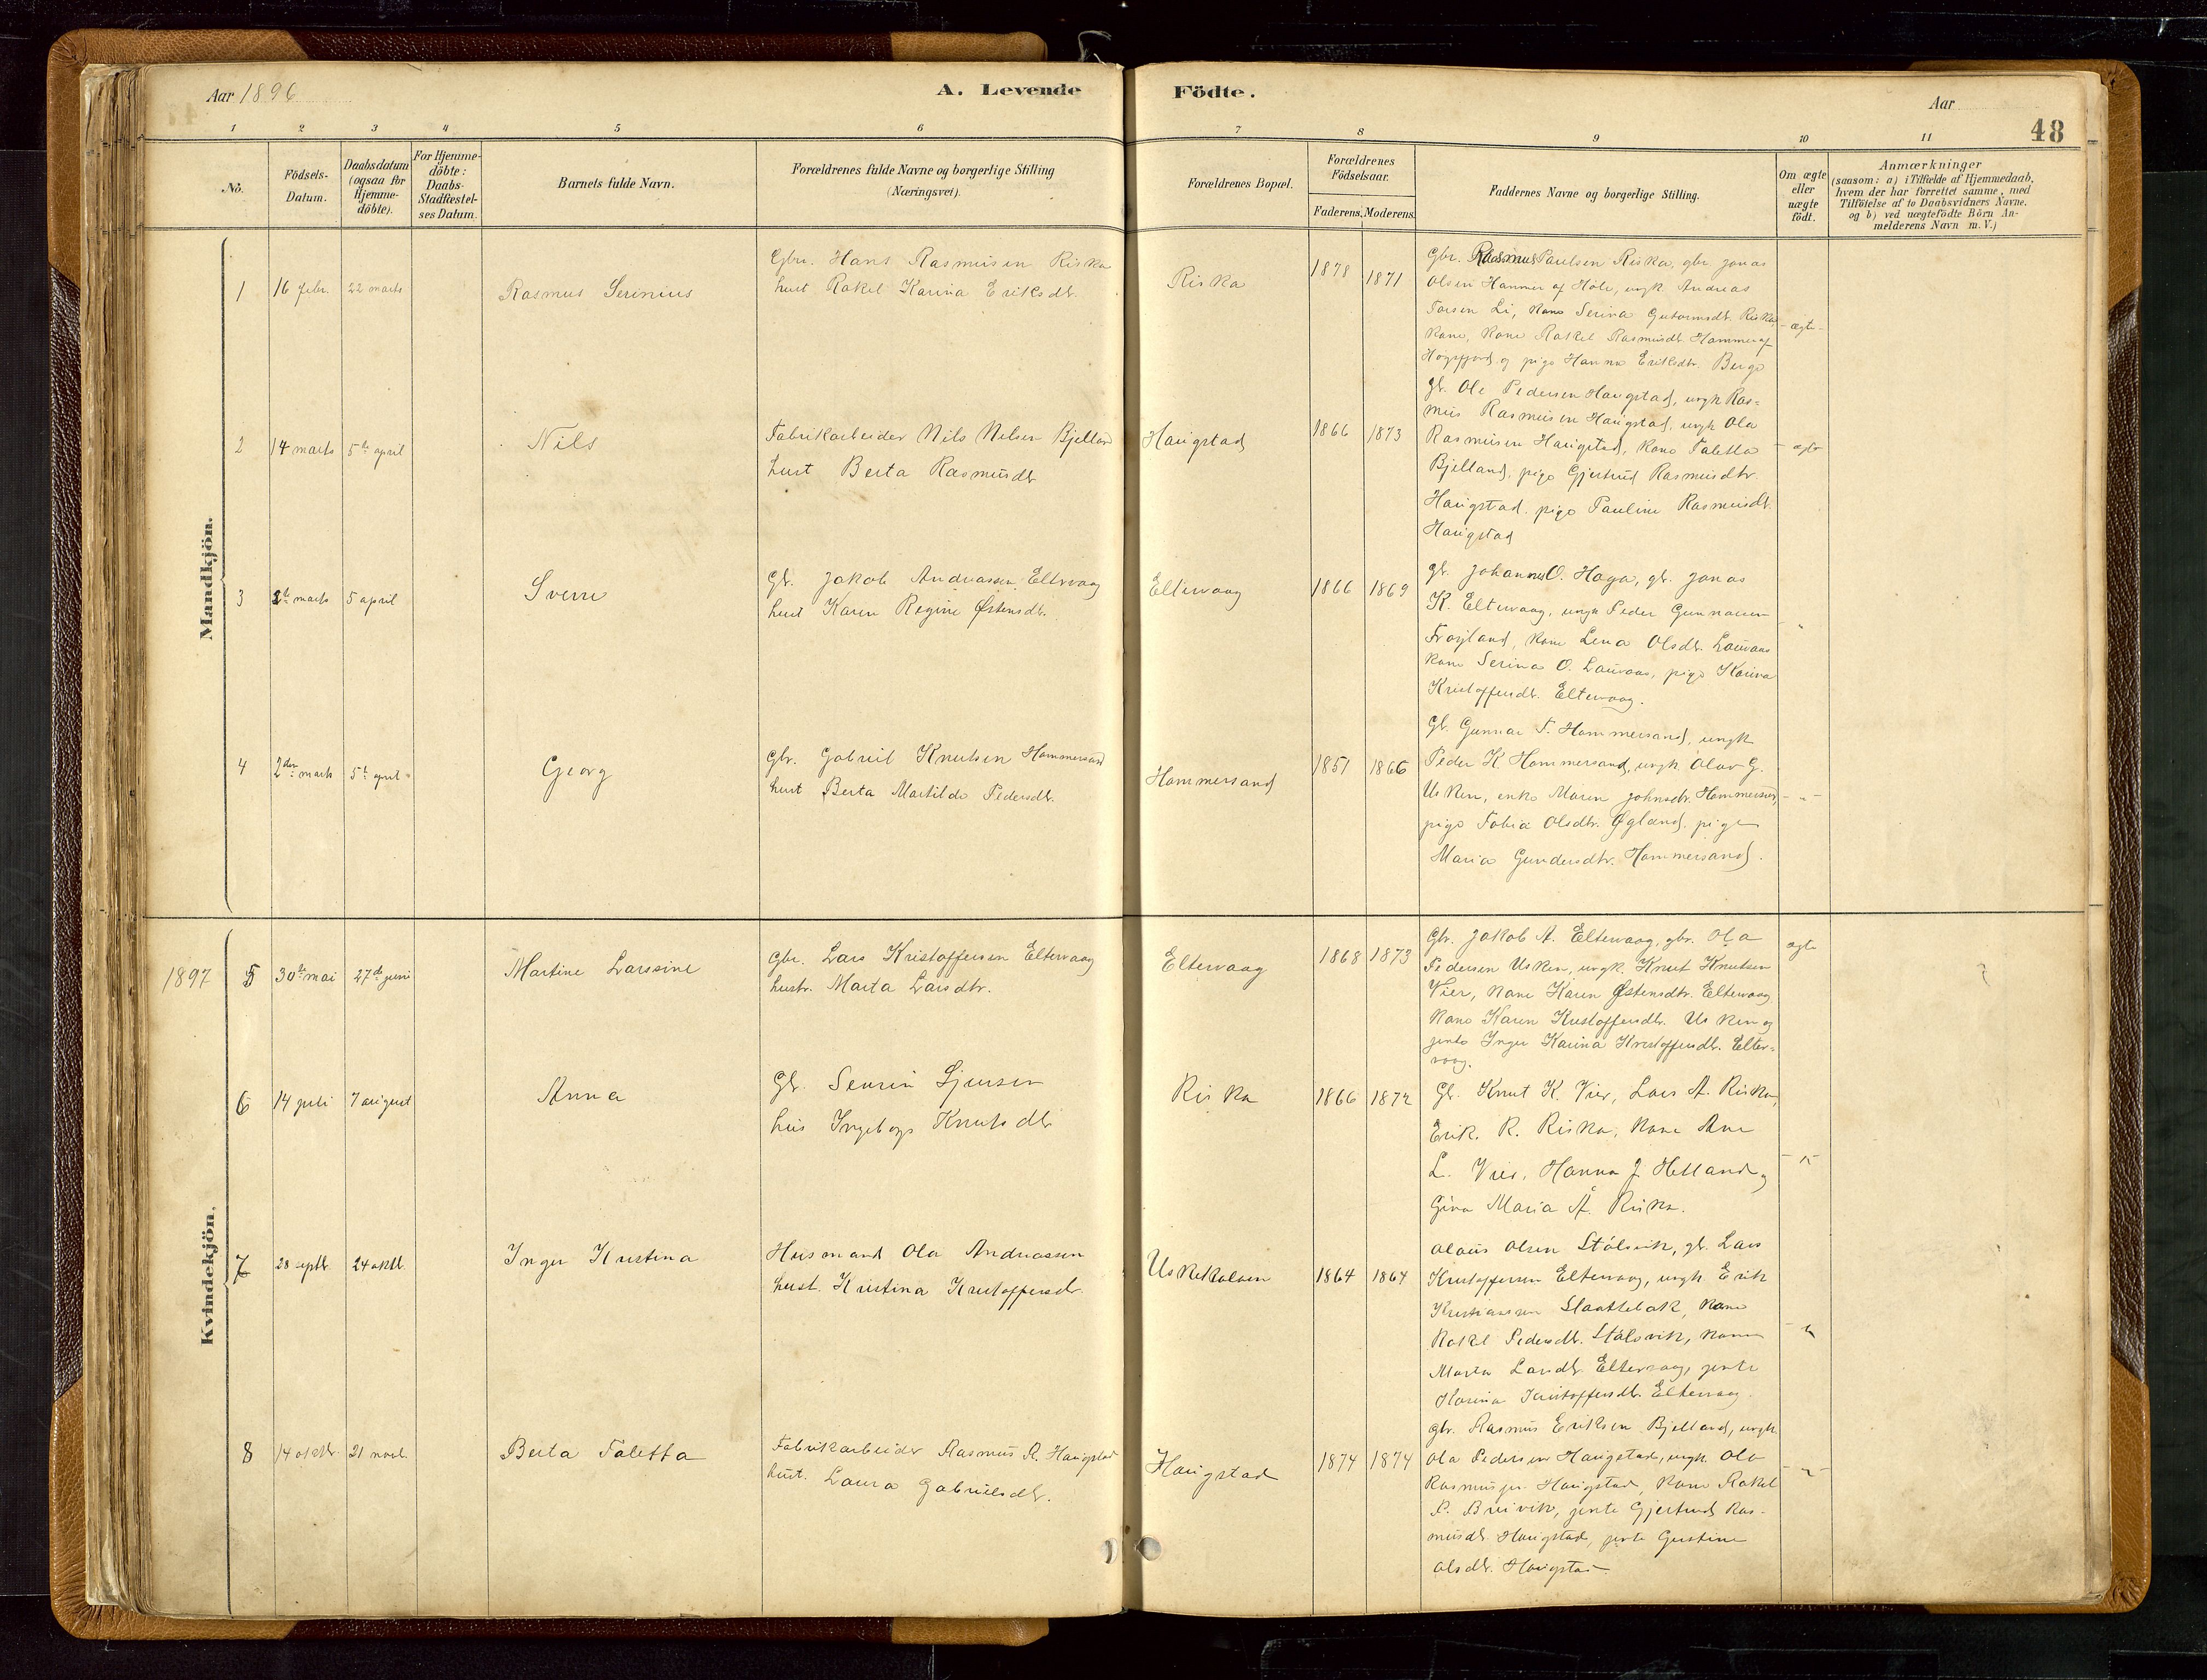 Aar 1896
A. Levende Födte.
Aar
48
1 2 3 4 5 6 7 8 9 10 11
No.
Födsels-
Datum.
Daabsdatum
(ogsaa for
Hjemme-
döbte).
For Hjemme-
döbte:
Daabs-
Stadfæstel-
ses Datum.
Barnets fulde Navn.
Forældrenes fulde Navne og borgerlige Stilling
(Næringsvei).
Forældrenes Bopæl.
Forældrenes
Födselsaar.
Faderens. Moderens.
Faddernes Navne og borgerlige Stilling.
Om ægte
eller
uægte
födt.
Anmærkninger
(saasom: a) i Tilfælde af Hjemmedaab,
hvem der har forrettet samme, med
Tilföielse af to Daabsvidners Navne.
og b) ved uægtefödte Börn An-
melderens Navn m. V.)
Mandkjön.
1 16 febr. 22 marts
Rasmus Serinius
Gbr. Hans Rasmusen Riska
hust Rakel Karina Eriksdt.
Riska
1878 1871
Gbr. Rasmus Paulsen Riska, gbr Jonas
Olsen Hammer af Höle, ungk Andreas
Torsen Li, kone Serina Gutormsdt. Riska
kone, kone Rakel Rasmusdt. Hammer af
Högsfjord, og pige Hanna Eriksdtr. Berge
ægte
2 14 marts 5te april
Nils
Fabrikarbeider Nils Nilsen Bjelland
hust Berta Rasmusdt
Haugstad
1866 1873
gb. Ole Pedersen Haugstad, ungk Ras=
mus Rasmusen Haugstad, ungk Ola
Rasmusen Haugstad, kone Taletta
Bjelland, pige Gjertrud Rasmusdtr.
Haugstad, pige Pauline Rasmusdt.
Haugstad
ægte
3 marts 5 april
Sverre
Gb. Jakob Andreassen Eltervaag
hust Karen Regine Østensdt.
Eltervaag
1866 1869
gb. Johannes O. Haga, gb. Jonas
K. Eltervaag, ungk Peder Gunnarsen
Frøyland, kone Lena Olsdt. Lauvaas
kone Serina O. Lauvaas, pige Karina
Kristoffersdt. Eltervaag.
"
4 2den marts 5te april
Georg
Gbr. Gabriel Knutsen Hammersand
hust Berta Martilde Pedersdt.
Hammersand
1851 1866
Gb. Gunnar T. Hammersand, ungk
Peder K. Hammersand, ungk. Olav G.
Usken, enke Maren Johnsdr. Hammersand,
pige Tobia Olsdtr. Øgland, pige
Maria Gundersdtr. Hammersand.
- " -
Kvindekjön.
1897 5 30te mai 27de juni
Martine Larssine
Gbr. Lars Kristoffersen Eltervaag
hustr. Marta Larsdtr.
Eltervaag
1868 1873
Gbr. Jakob A. Eltervaag, gbr. Ola
Pedersen Usken, ungk. Knut Knutsen
Vier, kone Karen Østensdtr. Eltervaag
kone Karen Kristoffersdt. Usken og
jente Inger Karina Kristoffersdt. Elter=
vaag.
ægte
6 14 juli 7 august
Anna
Gb. Sevrin Sjursen
hus Ingeborg Knutsdtr
Riska
1866 1872
Gb. Knut K. Vier, Lars A. Riska,
Erik. R. Riska, kone Ane
L. Vier, Hanna J. Helland og
Gina Maria A. Riska.
- " -
7 28 septb. 24 oktb.
Inger Kristina
Husmand Ola Andreassen
hust. Kristina Kristoffersdt.
Uskekalven
1864 1864
Olaus Olsen Stålsvik, gb. Lars
Kristoffersen Eltervaag, ungk. Erik
Kristiansen Slaattebak, kone
Rakel Pedersdt. Stålsvik, kone
Marta Larsdt. Eltervaag, jente
Karina Kristoffersdt. Eltervaag.
- " -
8 14 oktbr. 21 novb.
Berta Taletta
Fabrikarbeider Rasmus R. Haugstad
hust. Laura Gabrielsdt.
Haugstad
1874 1874
gbr. Rasmus Eriksen Bjelland, ungk.
Ola Pedersen Haugstad, ungk. Ola
Rasmusen Haugstad, kone Rakel
P. Breivik, jente Gjertrud Ras-
musdt. Haugstad, jente Gustine
Olsdt. Haugstad
- " -